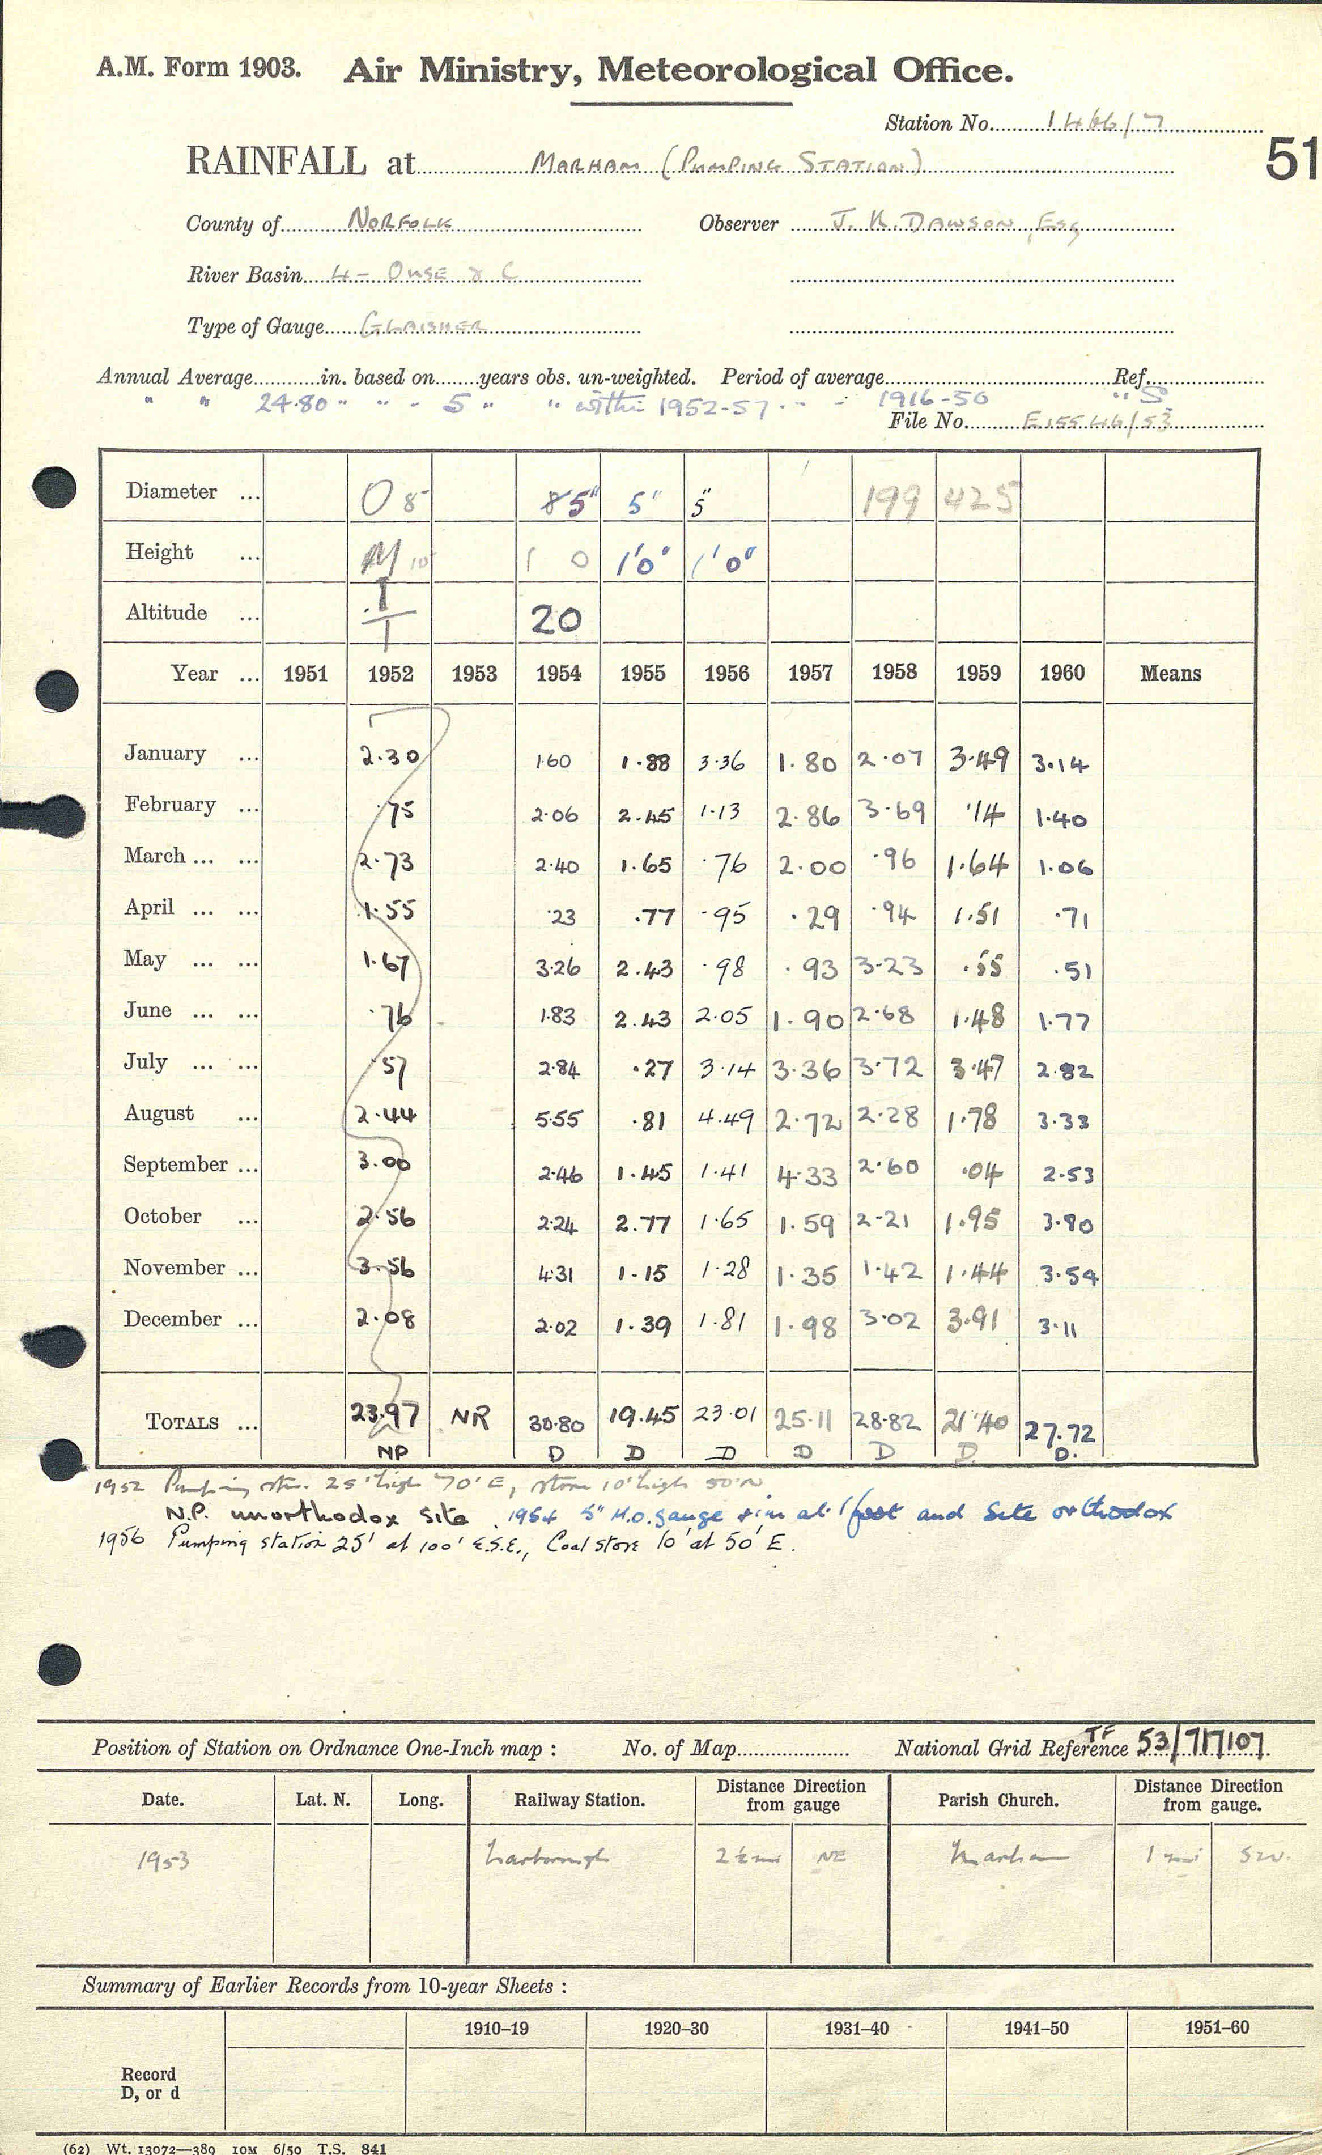 A.M. Form 1903. Air Ministry, Meteorological Office.
Station No. 1466/7
51
RAINFALL at MARHAM (PUMPING STATION)
County of NORFOLK Observer J. K. DAWSON, Esq
River Basin 4 - OUSE & C
Type of Gauge GLAISHER
Annual Average in. based on years obs. un-weighted. Period of average Ref.
" " 24.80 " " - 5 " " within 1952-57 " - 1916-50 " S.
File No. E15546/53
Diameter ... O 8" 8 5" 5" 5" 199 425
Height ... M 10 1 0 1'0" 1'0"
Altitude ... I/I 20
Year ... 1951 1952 1953 1954 1955 1956 1957 1958 1959 1960 Means
January ... 2.30 1.60 1.88 3.36 1.80 2.07 3.49 3.14
February ... .75 2.06 2.45 1.13 2.86 3.69 .14 1.40
March ... ... 2.73 2.40 1.65 .76 2.00 .96 1.64 1.06
April ... ... 1.55 .23 .77 .95 .29 .94 1.51 .71
May ... ... 1.67 3.26 2.43 .98 .93 3.23 .55 .51
June ... ... .76 1.83 2.43 2.05 1.90 2.68 1.48 1.77
July ... ... .57 2.84 .27 3.14 3.36 3.72 3.47 2.82
August ... 2.44 5.55 .81 4.49 2.72 2.28 1.78 3.33
September ... 3.00 2.46 1.45 1.41 4.33 2.60 .04 2.53
October ... 2.56 2.24 2.77 1.65 1.59 2.21 1.95 3.80
November ... 3.56 4.31 1.15 1.28 1.35 1.42 1.44 3.54
December ... 2.08 2.02 1.39 1.81 1.98 3.02 3.91 3.11
TOTALS ... 23.97 NR 30.80 19.45 23.01 25.11 28.82 21.40 27.72
NP D D D D D D D.
1952 Pumping stn. 25' high 70' E, store 10' high 50' N.
N.P. unorthodox site. 1954 5" M.O. gauge rim at 1 foot and Site orthodox
1956 Pumping station 25' at 100' E.S.E., Coal store 10' at 50' E.
Position of Station on Ordnance One-Inch map : No. of Map National Grid Reference TF 53/717107
Date. Lat. N. Long. Railway Station. Distance from gauge Direction Parish Church. Distance from gauge. Direction
1953 Narborough 2½ mi NE Marham 1 mi SW.
Summary of Earlier Records from 10-year Sheets :
1910–19 1920–30 1931–40 1941–50 1951–60
Record
D, or d
(62) Wt. 13072—389 10M 6/50 T.S. 841